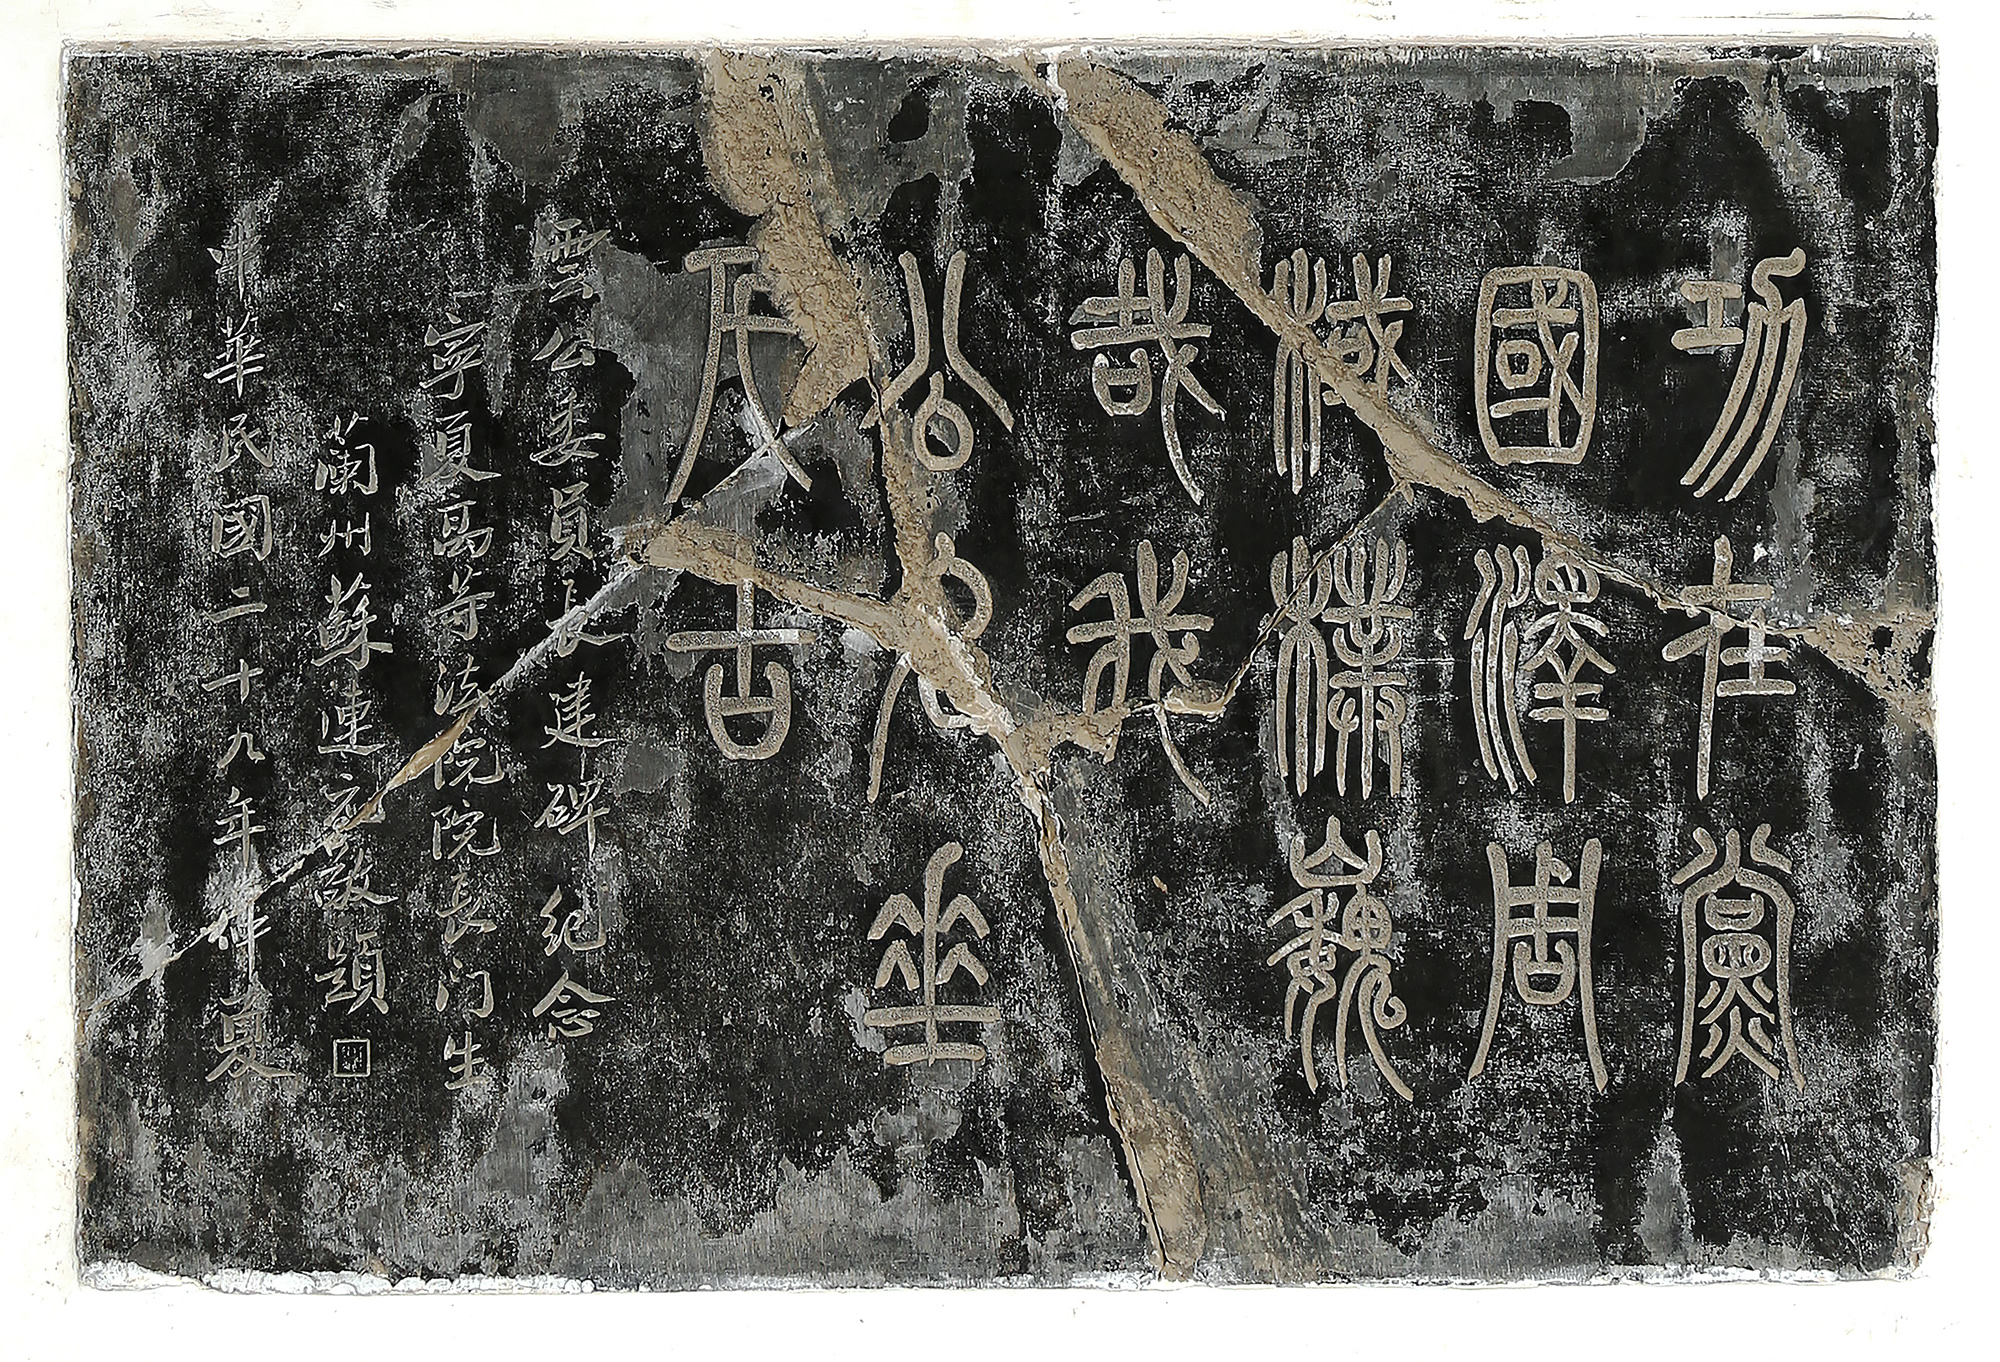 功在黨
國澤周
棫樸巍
哉我
公允垂
万古
雲公委員長建碑紀念
寧夏高等法院院長门生
蘭州蘇連元敬題
中華民國二十九年仲夏